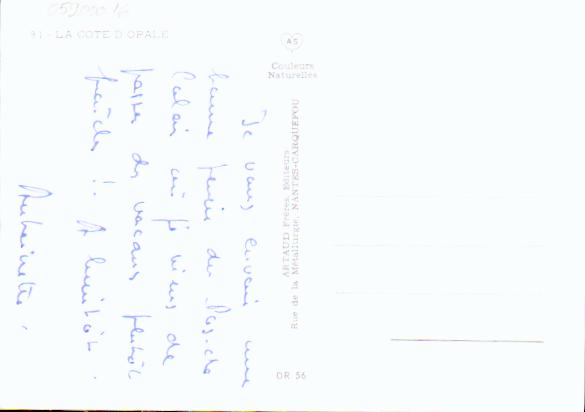 059000 16
91 - LA COTE D'OPALE
Je vous envoie une
bonne pensée du Pas-de
Calais où je viens de
passer des vacances plutôt
fraîches !! A bientôt.
AS
Couleurs
Naturelles
ARTAUD Frères, Editeurs
Rue de la Métallurgie, NANTES-CARQUEFOU
OR 56